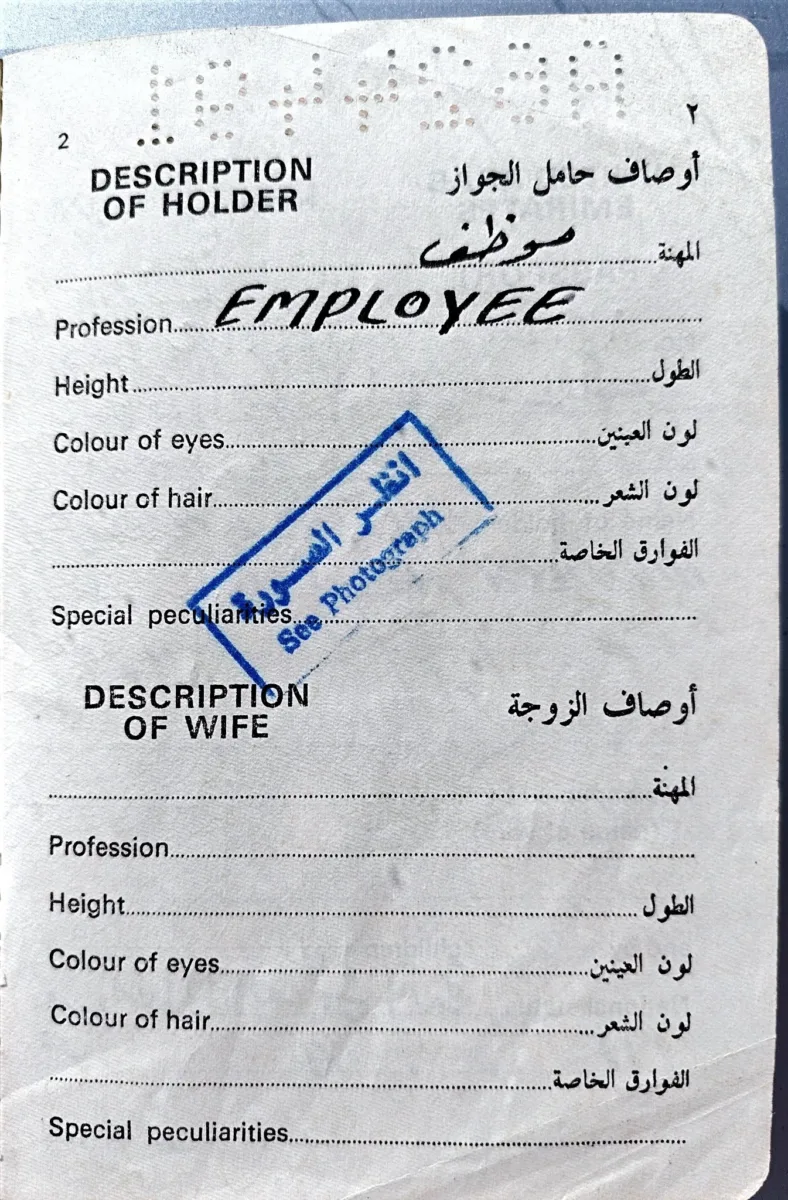 2
٢
DESCRIPTION
OF HOLDER
أوصاف حامل الجواز
موظف
المهنة
Profession EMPLOYEE
Height الطول
Colour of eyes لون العينين
Colour of hair لون الشعر
الفوارق الخاصة
Special peculiarities
انظر الصورة
See Photograph
DESCRIPTION
OF WIFE
أوصاف الزوجة
المهنة
Profession
Height الطول
Colour of eyes لون العينين
Colour of hair لون الشعر
الفوارق الخاصة
Special peculiarities